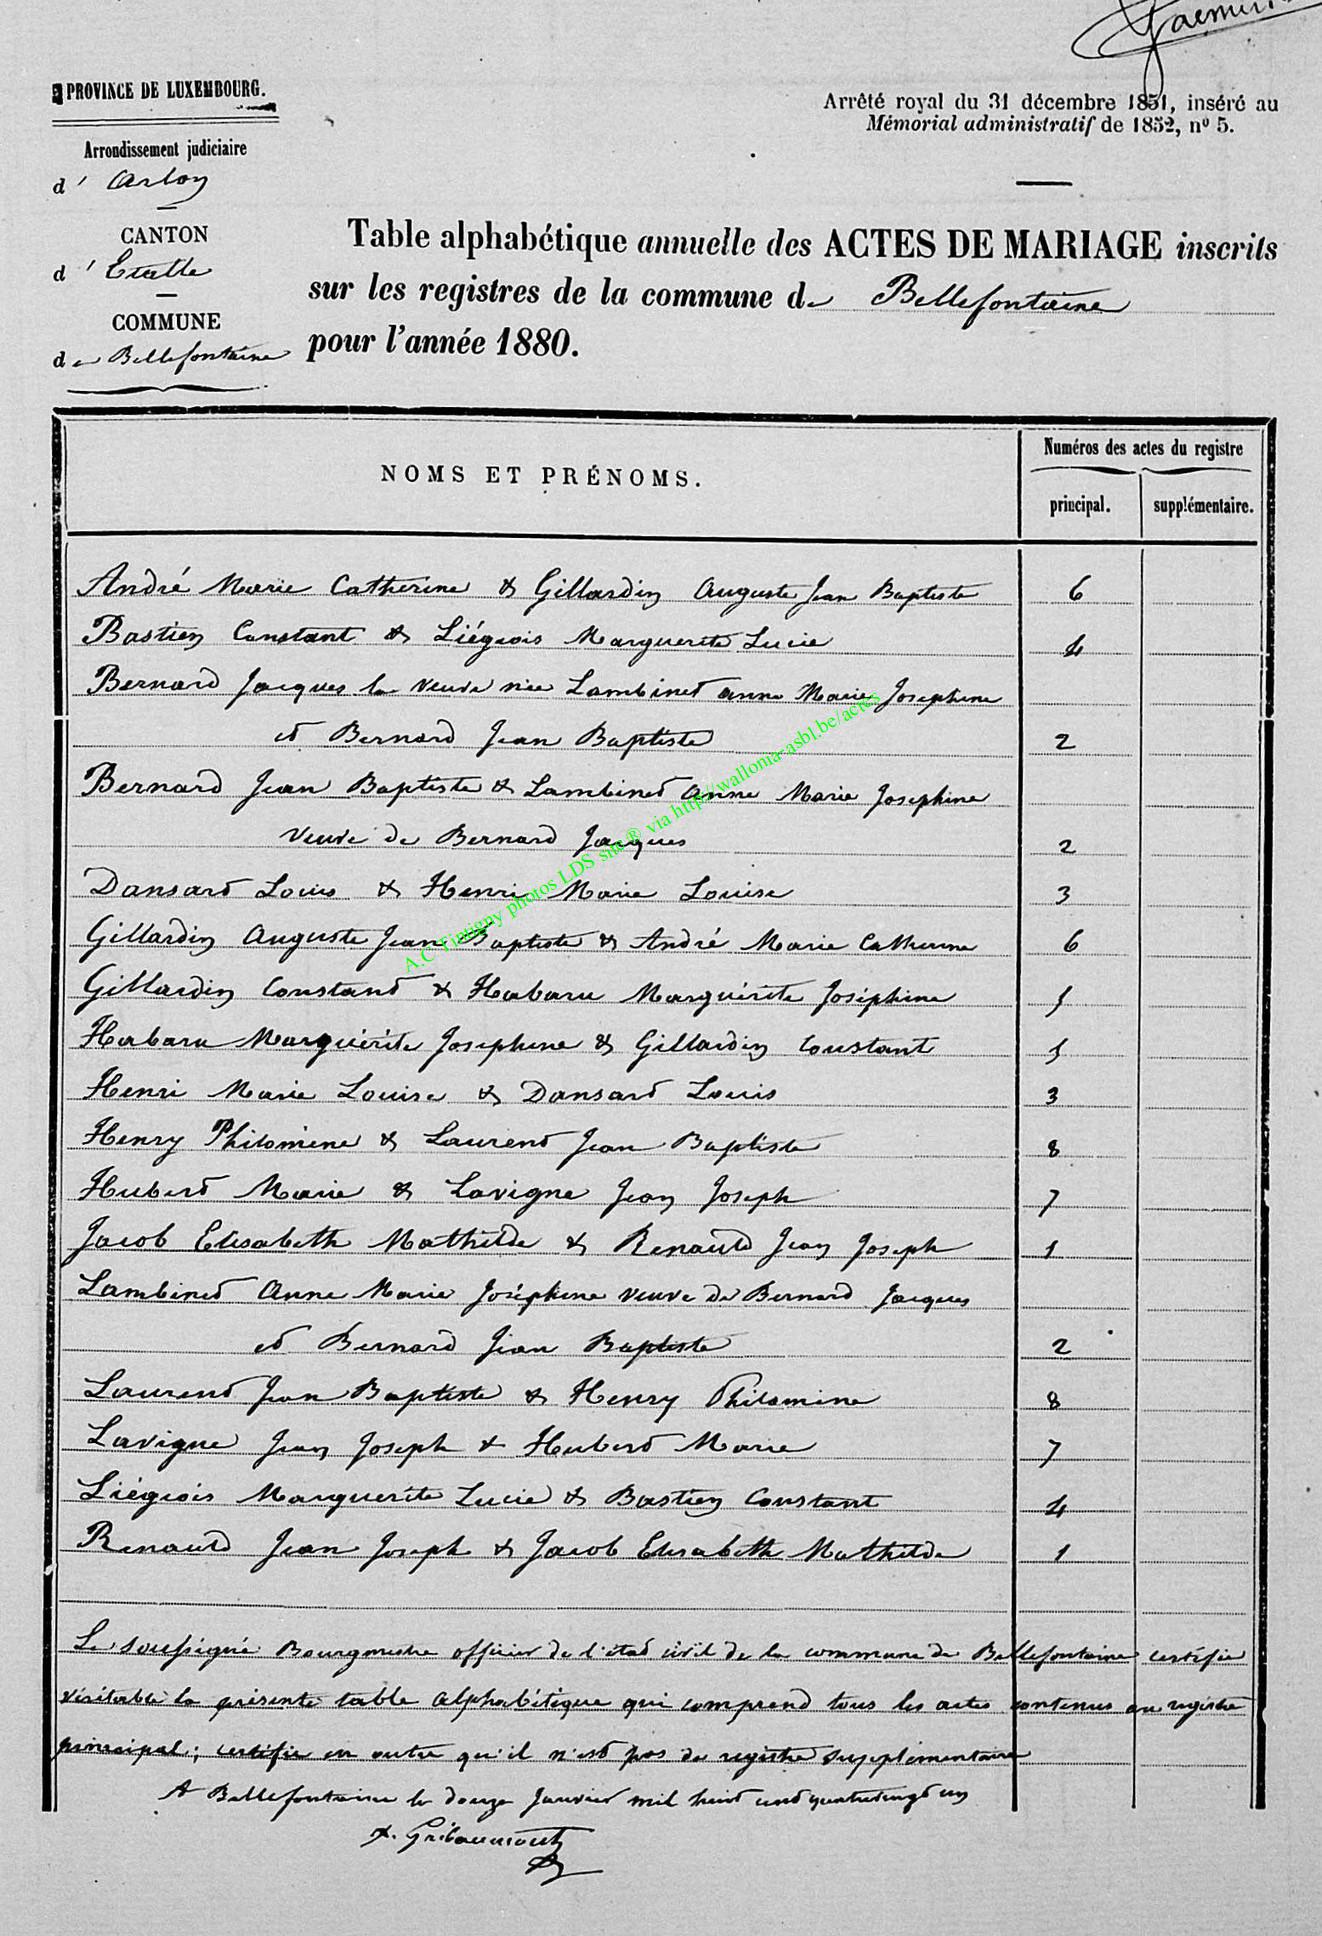 PROVINCE DE LUXEMBOURG.
Arrêté royal du 31 décembre 1851, inséré au
Mémorial administratif de 1852, nº 5.
Arrondissement judiciaire
d' Arlon
CANTON
d' Etalle
COMMUNE
de Bellefontaine
Table alphabétique annuelle des ACTES DE MARIAGE inscrits
sur les registres de la commune de Bellefontaine
pour l'année 1880.
NOMS ET PRÉNOMS.
Numéros des actes du registre
principal.
supplémentaire.
André Marie Catherine & Gillardin Auguste Jean Baptiste 6
Bastien Constant & Liégeois Marguerite Lucie 4
Bernard Jacques la veuve née Lambinet Anne Marie Josephine
et Bernard Jean Baptiste 2
Bernard Jean Baptiste & Lambinet Anne Marie Josephine
veuve de Bernard Jacques 2
Dansard Louis & Henri Marie Louise 3
Gillardin Auguste Jean Baptiste & André Marie Catherine 6
Gillardin Constant & Habaru Marguérite Joséphine 5
Habaru Marguérite Josephine & Gillardin Constant 5
Henri Marie Louise & Dansard Louis 3
Henry Philomène & Laurent Jean Baptiste 8
Hubert Marie & Lavigne Jean Joseph 7
Jacob Elisabeth Mathilde & Renauld Jean Joseph 1
Lambinet Anne Marie Joséphine veuve de Bernard Jacques
et Bernard Jean Baptiste 2
Laurent Jean Baptiste & Henry Philomine 8
Lavigne Jean Joseph & Hubert Marie 7
Liégeois Marguerite Lucie & Bastien Constant 4
Renauld Jean Joseph & Jacob Elisabeth Mathilde 1
Le soussigné Bourgmestre officier de l'état civil de la commune de Bellefontaine certifie
véritable la présente table alphabétique qui comprend tous les actes contenus au registre
principal; certifie en outre qu'il n'est pas de registre supplémentaire
A Bellefontaine le douze Janvier mil huit cent quatrevingt un
Gribaumont
A.C Tintigny photos LDS site ® via http://wallonia-asbl.be/actes